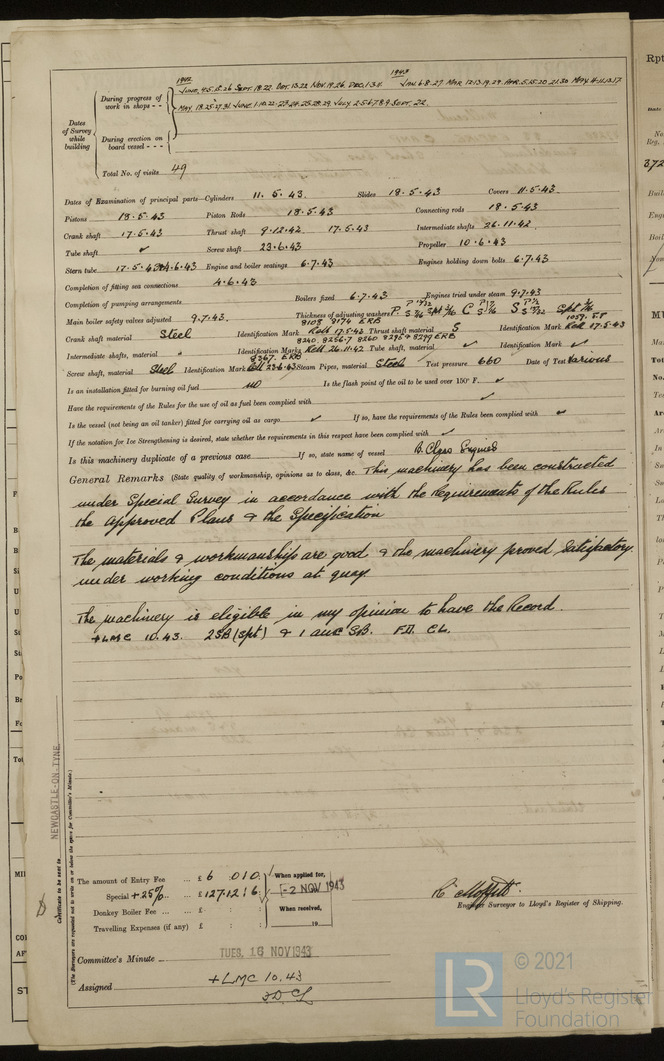 1942 1943
During progress of work in shops - - June 4.5.15.26 Sept. 18.22 Oct. 13.22 Nov. 19.26 Dec. 1.3.4 Jan. 6.8.27 Mar. 12.13.19.29 Apr. 5.15.20.21.30 May 4.11.13.17
May 18.25.27.31 June 1.10.22.23.24.25.28.29 July 2.5.6.7.8.9 Sept. 22.
Dates of Survey while building
During erection on board vessel - - -
Total No. of visits 49
Dates of Examination of principal parts—Cylinders 11.5.43. Slides 18.5.43 Covers 11.5.43.
Pistons 18.5.43 Piston Rods 18.5.43 Connecting rods 18.5.43
Crank shaft 17.5.43 Thrust shaft 9.12.42 17.5.43 Intermediate shafts 26.11.42
Tube shaft ✓ Screw shaft 23.6.43 Propeller 10.6.43
Stern tube 17.5.43 4.6.43 Engine and boiler seatings 6.7.43 Engines holding down bolts 6.7.43
Completion of fitting sea connections 4.6.43
Completion of pumping arrangements Boilers fixed 6.7.43 Engines tried under steam 9.7.43
Main boiler safety valves adjusted 9.7.43. Thickness of adjusting washers
Crank shaft material Steel Identification Mark 17.5.43 Thrust shaft material S Identification Mark 17.5.43
Intermediate shafts, material " Identification Marks 26.11.42 Tube shaft, material ✓ Identification Mark ✓
Screw shaft, material Steel Identification Mark 23.6.43 Steam Pipes, material Steel Test pressure 660 Date of Test Various
Is an installation fitted for burning oil fuel no Is the flash point of the oil to be used over 150° F. ✓
Have the requirements of the Rules for the use of oil as fuel been complied with ✓
Is the vessel (not being an oil tanker) fitted for carrying oil as cargo ✓ If so, have the requirements of the Rules been complied with ✓
If the notation for Ice Strengthening is desired, state whether the requirements in this respect have been complied with ✓
Is this machinery duplicate of a previous case If so, state name of vessel B. Class Engines
General Remarks (State quality of workmanship, opinions as to class, &c. This machinery has been constructed
under Special Survey in accordance with the Requirements of the Rules
the approved Plans & the Specification
The materials & workmanship are good & the machinery proved satisfactory
under working conditions at quay
The machinery is eligible in my opinion to have the Record.
+LMC 10.43. 2SB (Spt) & 1 aux SB. FD. CL.
NEWCASTLE-ON-TYNE.
Certificate to be sent to
(The Surveyors are requested not to write on or below the space for Committee's Minute.)
The amount of Entry Fee ... £ 6 : 0 : 0 When applied for,
Special +25% ... £ 127 : 12 : 6 -2 NOV 1943
Donkey Boiler Fee ... £ : : When received,
Travelling Expenses (if any) £ : : 19
R. Moffitt.
Engineer Surveyor to Lloyd's Register of Shipping.
Committee's Minute TUES. 16 NOV 1943
Assigned +LMC 10.43
FD CL
LR © 2021
Lloyd's Register
Foundation